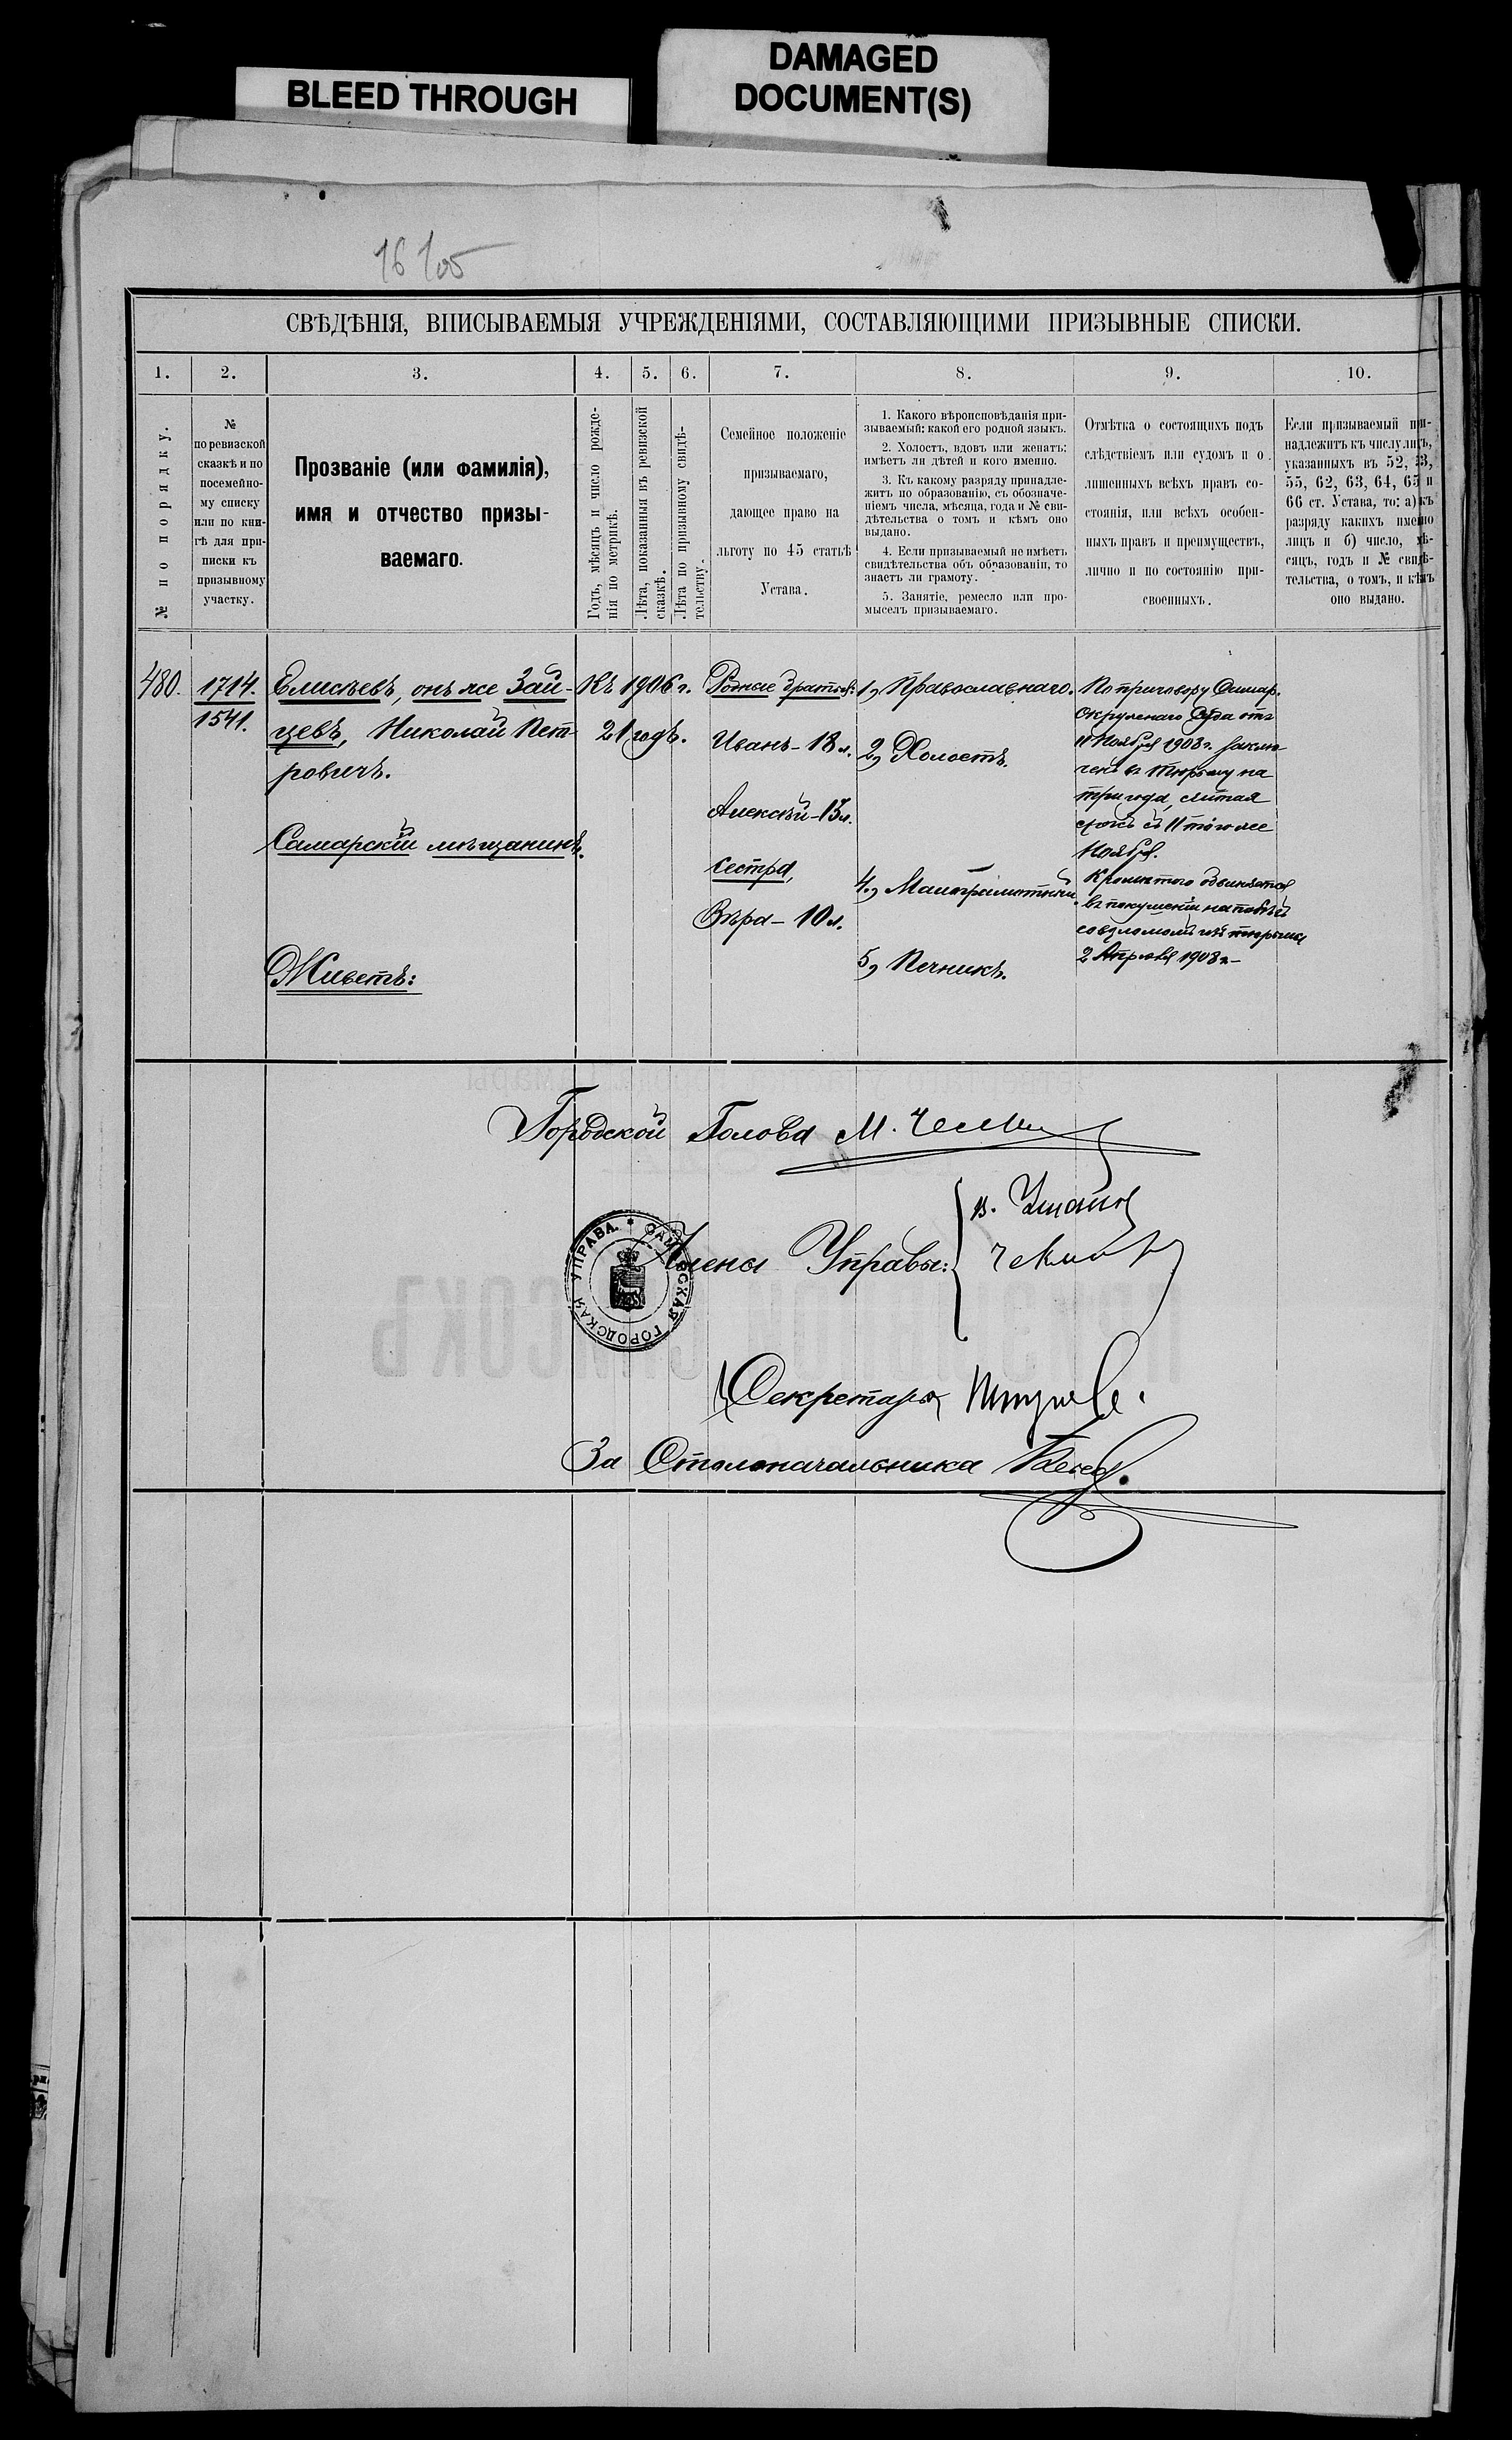 BLEED THROUGH
DAMAGED
DOCUMENT(S)
СВѢДѢНІЯ, ВПИСЫВАЕМЫЯ УЧРЕЖДЕНІЯМИ, СОСТАВЛЯЮЩИМИ ПРИЗЫВНЫЕ СПИСКИ.
1. 2. 3. 4. 5. 6. 7. 8. 9. 10.
№ по порядку.
№
по ревизской
сказкѣ и по
посемейно-
му списку
или по кни-
гѣ для при-
писки къ
призывному
участку.
Прозваніе (или фамилія),
имя и отчество призы-
ваемаго.
Годъ, мѣсяцъ и число рожде-
нія по метрикѣ.
Лѣта, показанныя въ ревизской
сказкѣ.
Лѣта по призывному свидѣ-
тельству.
Семейное положеніе
призываемаго,
дающее право на
льготу по 45 статьѣ
Устава.
1. Какого вѣроисповѣданія при-
зываемый; какой его родной языкъ.
2. Холостъ, вдовъ или женатъ;
имѣетъ ли дѣтей и кого именно.
3. Къ какому разряду принадле-
житъ по образованію, съ обозначе-
ніемъ числа, мѣсяца, года и № сви-
дѣтельства о томъ и кѣмъ оно
выдано.
4. Если призываемый не имѣетъ
свидѣтельства объ образованіи, то
знаетъ ли грамоту.
5. Занятіе, ремесло или про-
мыселъ призываемаго.
Отмѣтка о состоящихъ подъ
слѣдствіемъ или судомъ и о
лишенныхъ всѣхъ правъ со-
стоянія, или всѣхъ особен-
ныхъ правъ и преимуществъ,
лично и по состоянію при-
своенныхъ.
Если призываемый при-
надлежитъ къ числу лицъ,
указанныхъ въ 52, 53,
55, 62, 63, 64, 65 и
66 ст. Устава, то: а) къ
разряду какихъ именно
лицъ и б) число, мѣ-
сяцъ, годъ и № свидѣ-
тельства, о томъ, и кѣмъ
оно выдано.
480.
1714.
1541.
Елисѣевъ, онъ же Зай-
цевъ, Николай Пет-
ровичъ.
Самарскій мѣщанинъ.
Живетъ:
Къ 1906 г.
21 годъ.
Родные братья:
Иванъ - 18 л.
Алексѣй - 13 л.
сестра,
Вѣра - 10 л.
1, Православнаго.
2, Холостъ.
4, Малограмотный.
5, Печникъ.
По приговору Самар.
Окружнаго Суда отъ
11 Ноября 1903 г. заклю-
ченъ въ тюрьму на
три года, считая
срокъ съ 11 того же
Ноября.
Кромѣ того обвиняется
въ покушеніи на побѣгъ
со взломомъ изъ тюрьмы
2 Апрѣля 1908 г.
Городской Голова М.
Члены Управы:
САМАРСКАЯ ГОРОДСКАЯ УПРАВА.
Секретарь
За Столоначальника